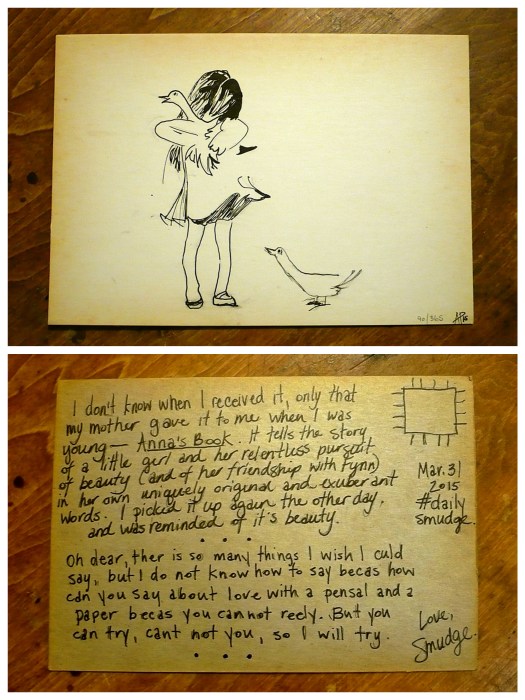 90/365
I don't know when I received it, only that
my mother gave it to me when I was
young — Anna's Book. It tells the story
of a little girl and her relentless pursuit
of beauty (and of her friendship with Fynn)
in her own uniquely original and exuberant
words. I picked it up again the other day,
and was reminded of it's beauty.
• • •
Oh dear, ther is so many things I wish I culd
say, but I do not know how to say becas how
can you say about love with a pensal and a
paper becas you can not reely. But you
can try, cant not you, so I will try.
• • •
Mar. 31
2015
#daily
smudge.
Love,
Smudge.